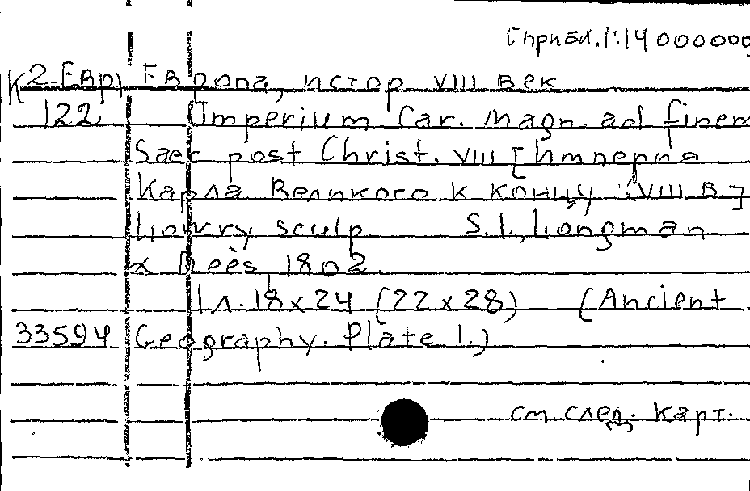 [прибл. 1:14 000 000]
К 2-Евр Европа, истор VIII век
122 Imperium Car. Magn. ad finem
Saec post Christ. VIII [Империя
Карла Великого к концу VIII в]
Lowry sculp S.l., Longman
x Rees, 1802
1 л. 18 x 24 (22 x 28) (Ancient
33594 Geography. Plate 1.)
см след. карт.